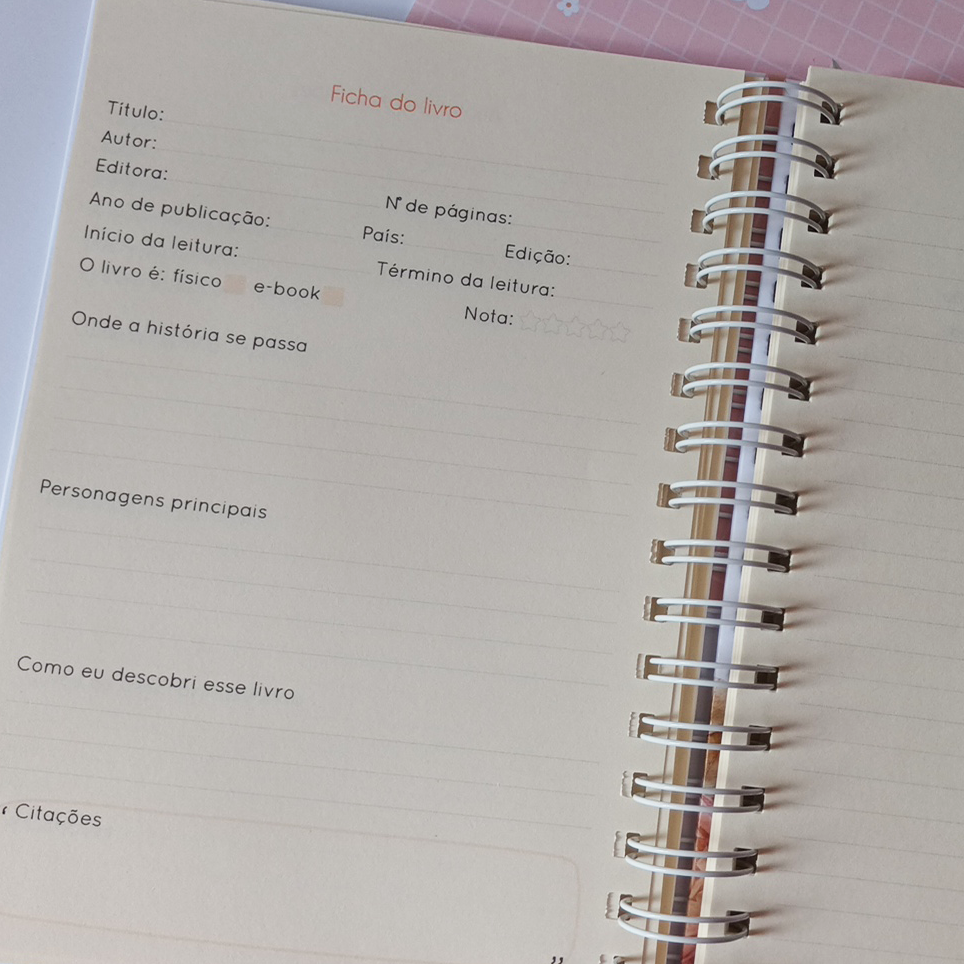 Ficha do livro
Título:
Autor:
Editora:
Ano de publicação: Nº de páginas:
Início da leitura: País: Edição:
O livro é: físico e-book Término da leitura:
Nota:
Onde a história se passa
Personagens principais
Como eu descobri esse livro
‘ Citações
”